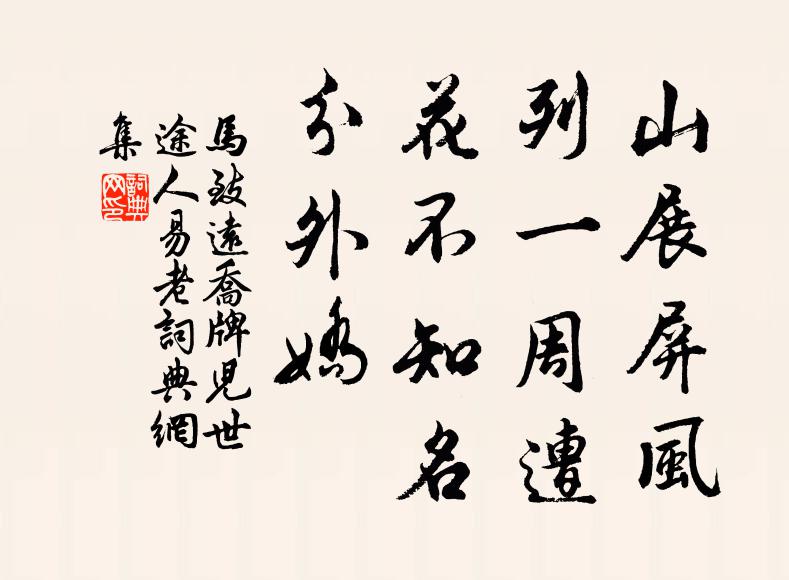 山展屏風
列一周遭
花不知名
分外嬌
馬致遠喬牌兒世
途人易老詞典網
集
詞典
网印